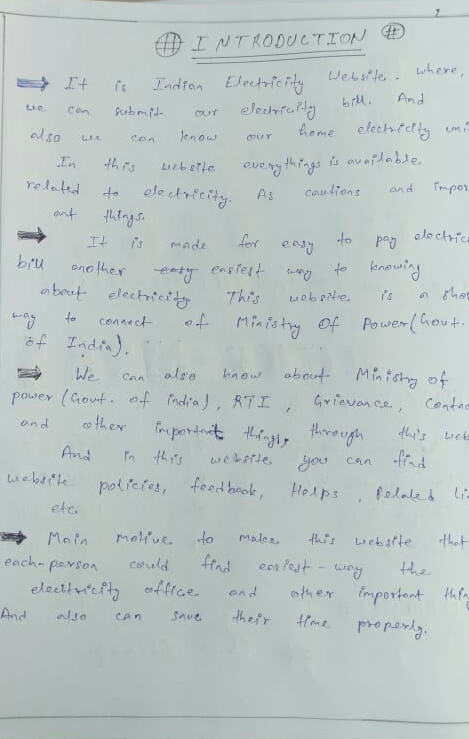 # INTRODUCTION #
It is Indian Electricity Website. where,
we can submit our electricity bill. And
also we can know our home electricity uni
In this website everythings is available
related to electricity. As cautions and impor
ant things.
It is made for easy to pay electric
bill another easy easiest way to knowing
about electricity This website is a sho
way to connect of Ministry Of Power (Govt.
of India).
We can also know about Ministry of
power (Govt. of india), RTI, Grievance, Contac
and other important things, through this web
And in this website you can find
website policies, feedback, Helps, Related Li
etc.
Main motive to make this website that
each-person could find easiest-way the
electricity office and other important thin
And also can save their time properly.